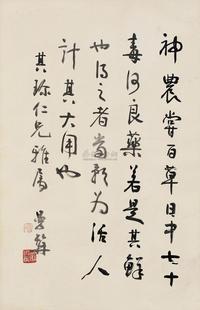 神農嘗百草日中七十
毒何良藥若是其鮮
也得之者當款為活人
計其大用也
其珍仁兄雅屬